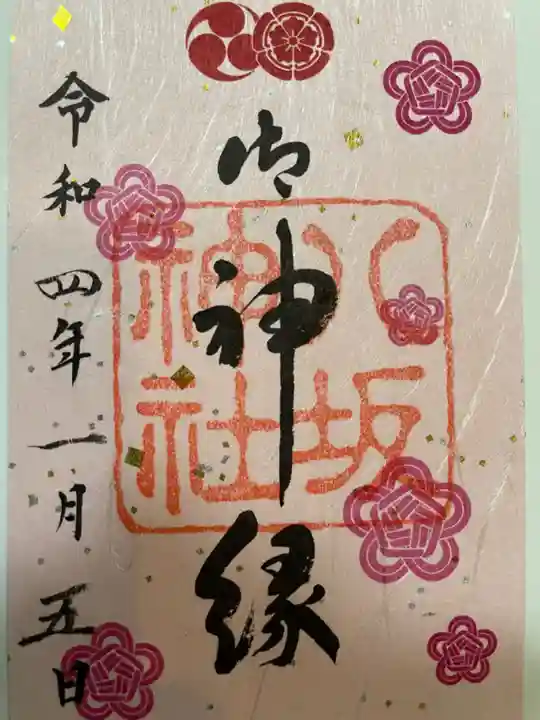 御神縁
八坂神社
令和四年一月五日